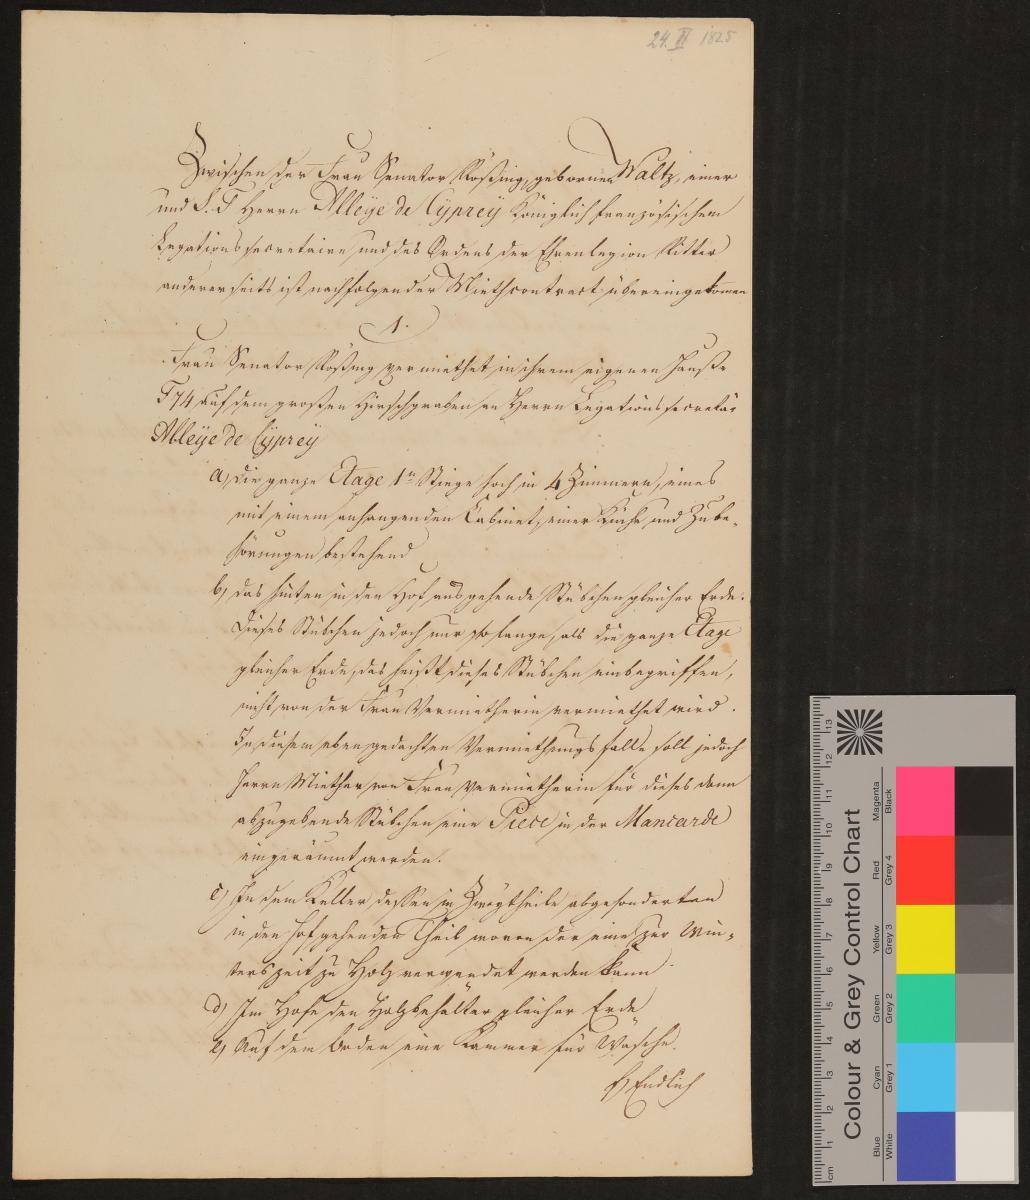 24. II 1825
Zwischen der Frau Senator Rößing, gebornen Waltz, einer
und S. T Herrn Alleye de Cyprey Königlich französischem
Legationssecretaire und des Ordens der Ehrenlegion Ritter
andererseits ist nachfolgender Miethcontract übereingekommen
1.
Frau Senator Rößing vermiethet in ihrem eigenen Hauße
F 74 auf dem großen Hirschgraben an Herrn Legationssecretär
Alleye de Cyprey
a) die ganze Etage 1n Stiege hoch in 4 Zimmern, eines
mit einem anhangenden Cabinet, einer Küche und Zube-
hörungen bestehend
b) das hinten in den Hof ausgehende Stübchen gleicher Erde.
Dieses Stübchen jedoch nur so lange, als die ganze Etage
gleicher Erde, das heißt dieses Stübchen einbegriffen,
nicht von der Frau Vermietherin vermiethet wird.
In diesem eben gedachten Vermiethungsfalle soll jedoch
Herrn Miether von Frau Vermietherin für dieses dann
abzugebende Stübchen eine Piece in der Mansarde
eingeräumt werden.
c) In dem Keller dessen in Theile abgesonderten
in den Hof gehenden Theil wovon der eine zur Win-
terszeit zu Holz verwendet werden kann.
d) Im Hofe den Holzbehälter gleicher Erde
e) Auf dem Boden eine Kammer für Wäsche.
f) Endlich
Colour & Grey Control Chart
Blue Cyan Green Yellow Red Magenta
White Grey 1 Grey 2 Grey 3 Grey 4 Black
cm 1 2 3 4 5 6 7 8 9 10 11 12 13